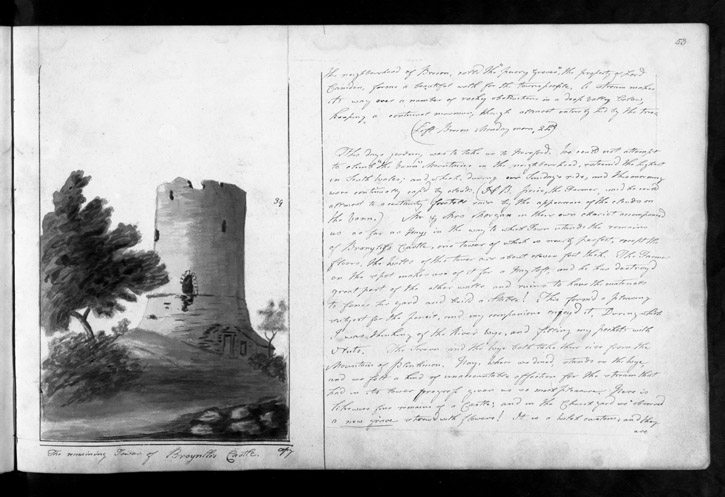 39
The remaining Tower of Broynllis Castle.
53
the neighbourhood of Brecon, called the "priory Groves", the property of Lord
Camden, forms a beautiful walk for the townspeople. A stream makes
its way over a number of rocky obstructions in a deep valley below,
keeping a continual murmur, though almost entirely hid by the trees.
(Left Brecon Monday morn.
This days journey was to take us to Hereford. We could not attempt
to climb the "Vann" Mountains in the neighbourhood, esteemed the highest
in South Wales; and which, during our Sunday's ride, and this morning
were continually cap'd by clouds. (N.B. the Farmer, used
almost to constantly his by the appearance of the clouds on
the Vann.) Mr & Mrs Morgan in their own chariot accompanied
us as far as Hay; in the way to which Town stands the remains
of Broynllis Castle, one tower of which is nearly perfect, except the
floors, the walls of the tower are about eleven feet thick. The Farmer
on the spot makes use of it for a Hay loft, and he has destroyed
great part of the other walls and ruins to have the materials
to fence his yard and build a stable! This formed a
subject for the pencil, and my companions enjoyed it. During which
I was thinking of the River Wye, and filling my pockets with
The Severn and the Wye both take their rise from the
Mountain of Plinlimon. Hay, where we dined, stands on the Wye,
and we felt a kind of unaccountable affection for the stream that
had in its lower progress given us so much pleasure. Here is
likewise fine remains of a Castle; and in the Church yard we observed
a new grave strewed with flowers! It is a custom, and they
are